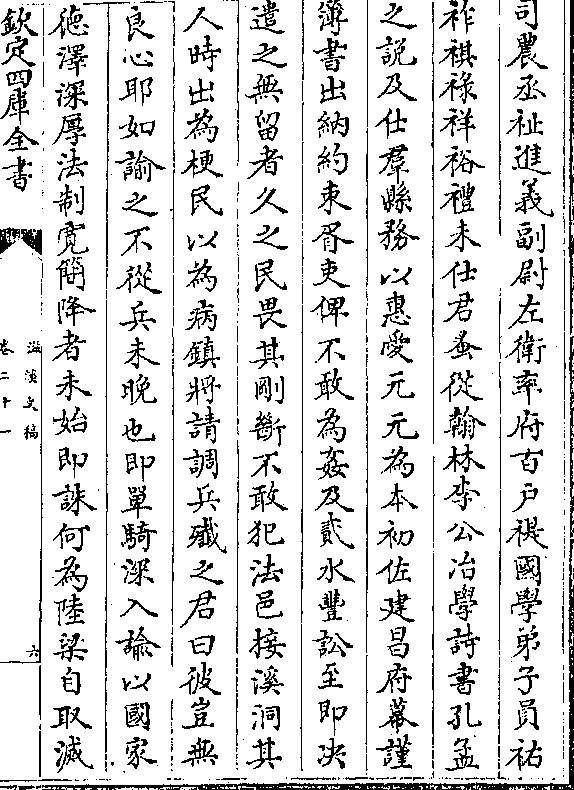 司農丞祉進義副尉左衛率府百戶禔國學弟子員祐
祚祺祿祥裕禮未仕君蚤從翰林李公冶學詩書孔孟
之說及仕羣縣務以惠愛元元為本初佐建昌府幕謹
簿書出納約束胥吏俾不敢為姦及貳水豐訟至即決
遣之無留者久之民畏其剛斷不敢犯法邑接溪洞其
人時出為梗民以為病鎮將請調兵殲之君曰彼豈無
良心耶如諭之不從兵未晚也即單騎深入諭以國家
德澤深厚法制寛簡降者未始即誅何為陸梁自取滅
欽定四庫全書
滋溪文稿
卷二十一
六